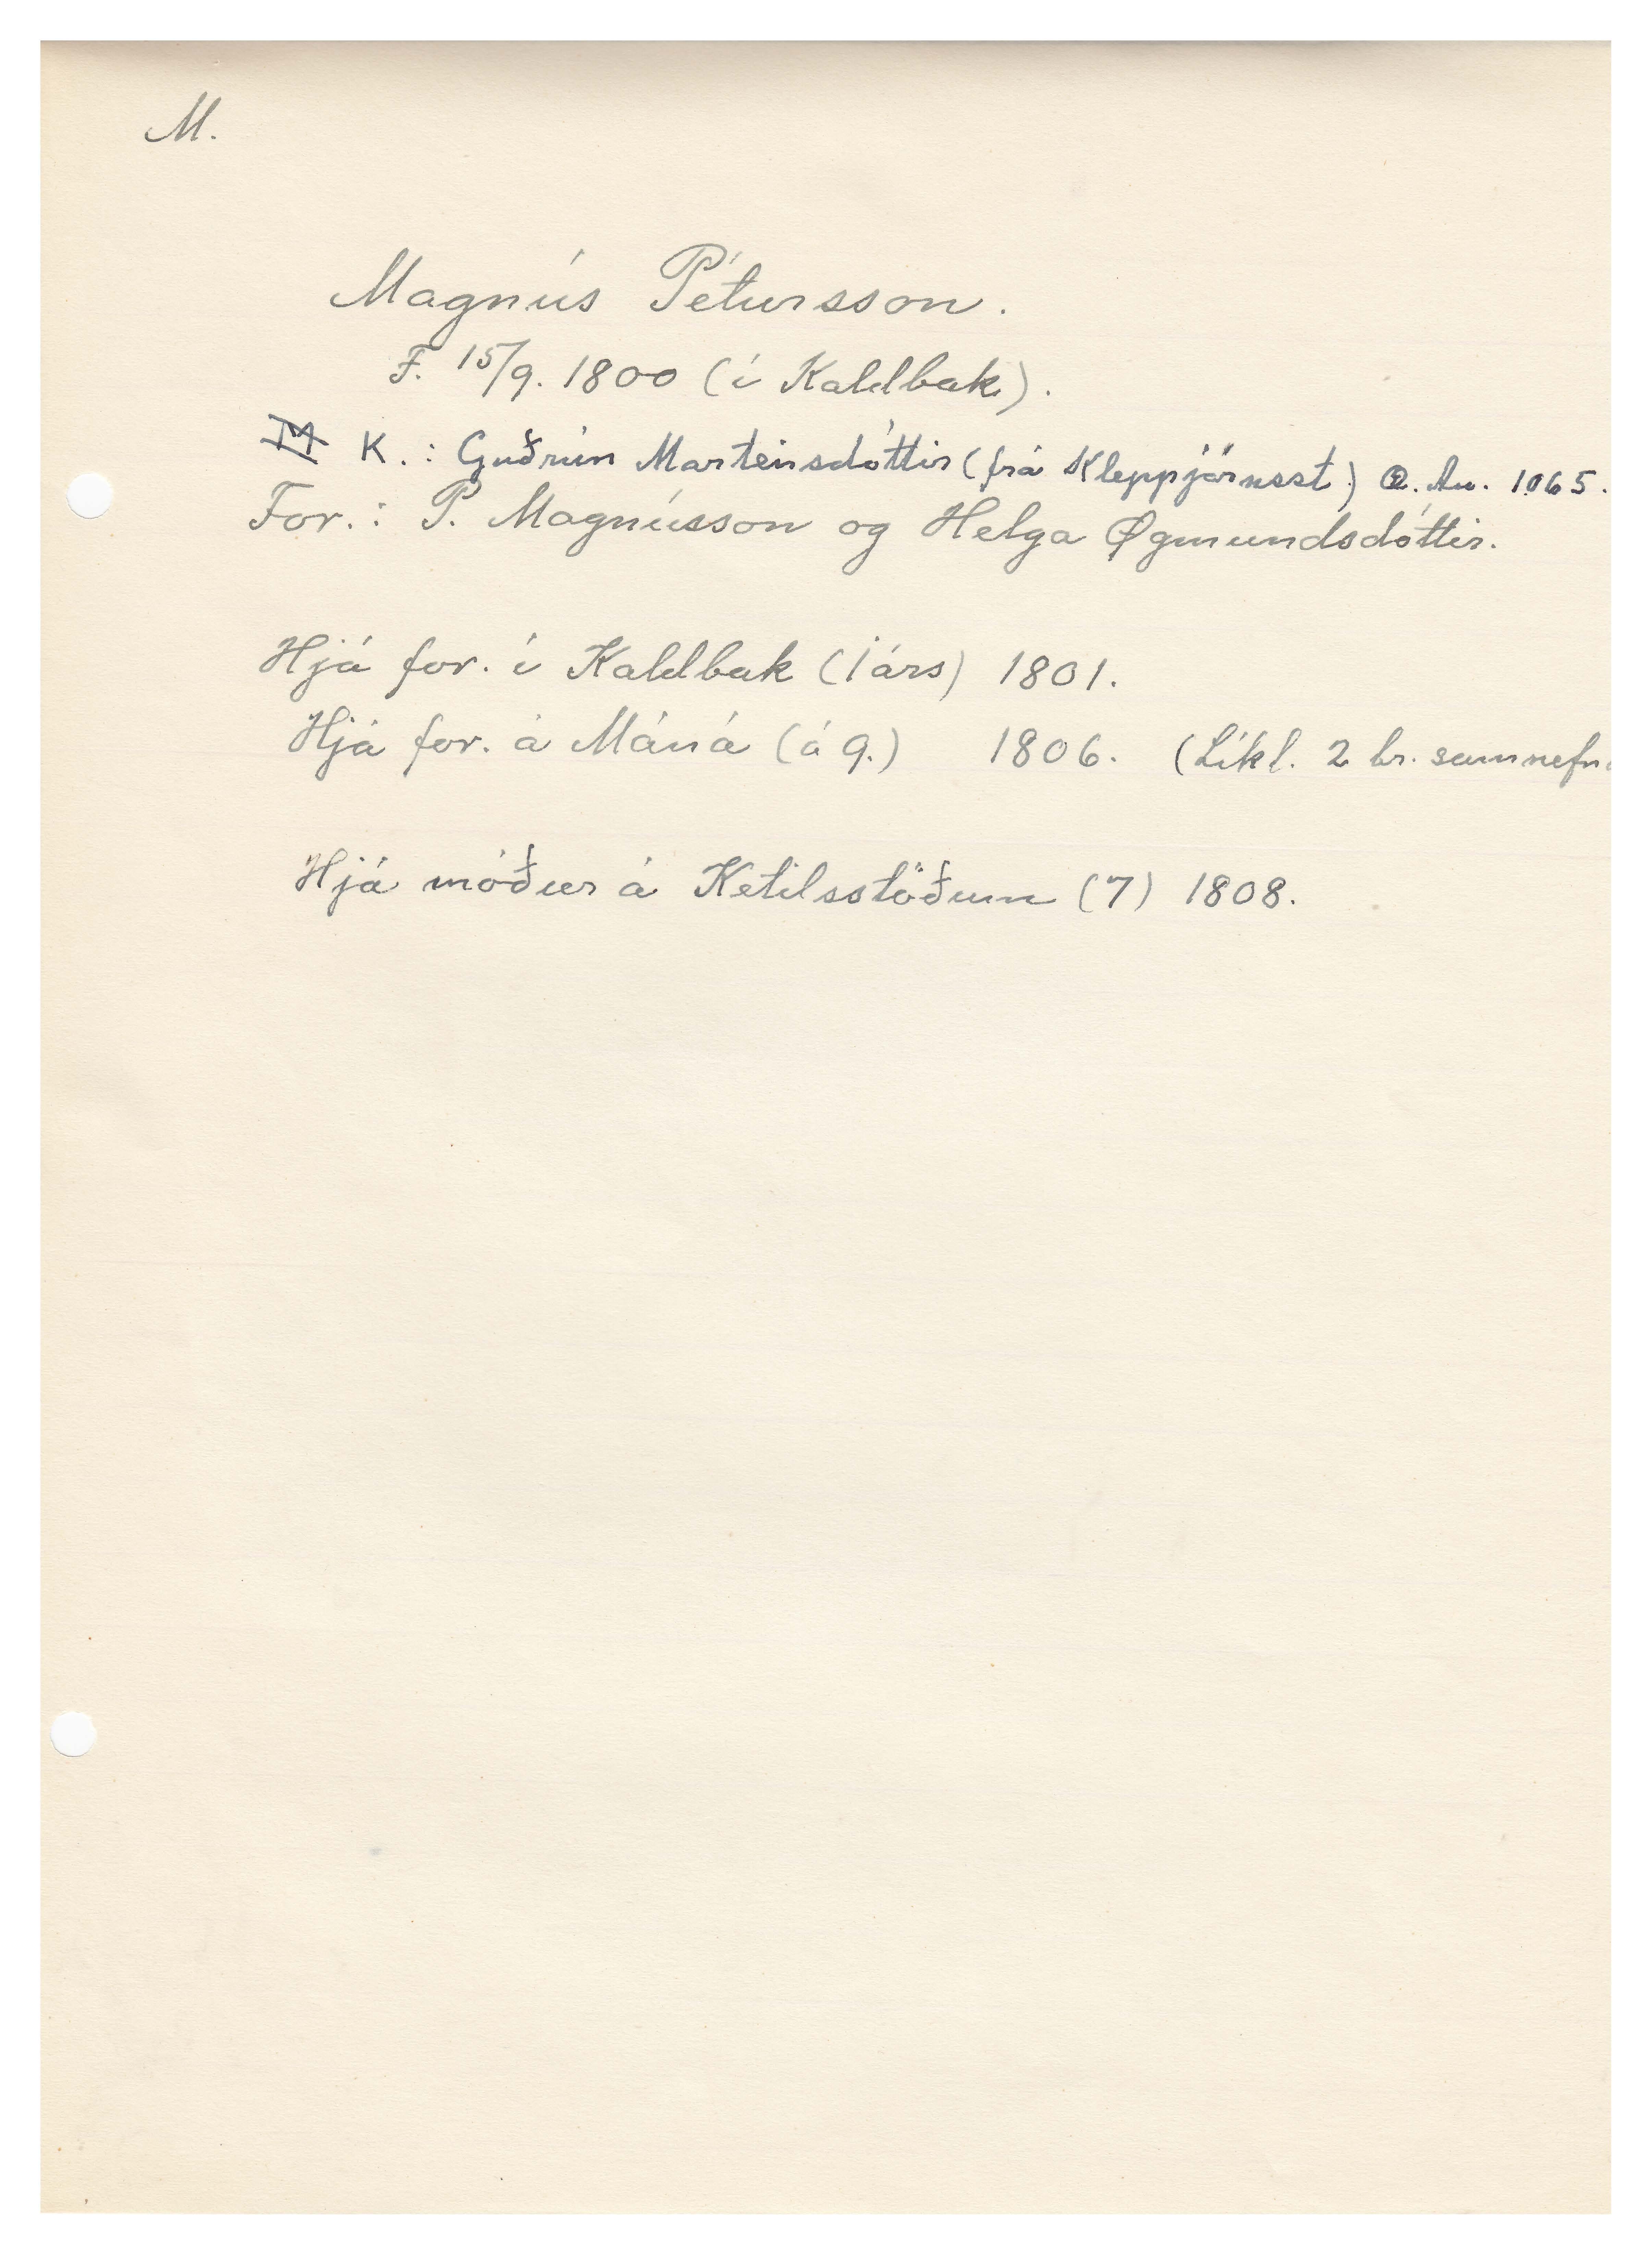 M.
Magnús Pétursson.
F. 15/9. 1800 (í Kaldbak).
K.: Guðrún Marteinsdóttir (frá Kleppjárnsst.) Au. 1065.
For.: P. Magnússon og Helga Øgmundsdóttir.
Hjá for. í Kaldbak (1 árs) 1801.
Hjá for. á Máná (á 9.) 1806. (Líkl. 2 br. samnefn
Hjá móður á Ketilsstöðum (7) 1808.